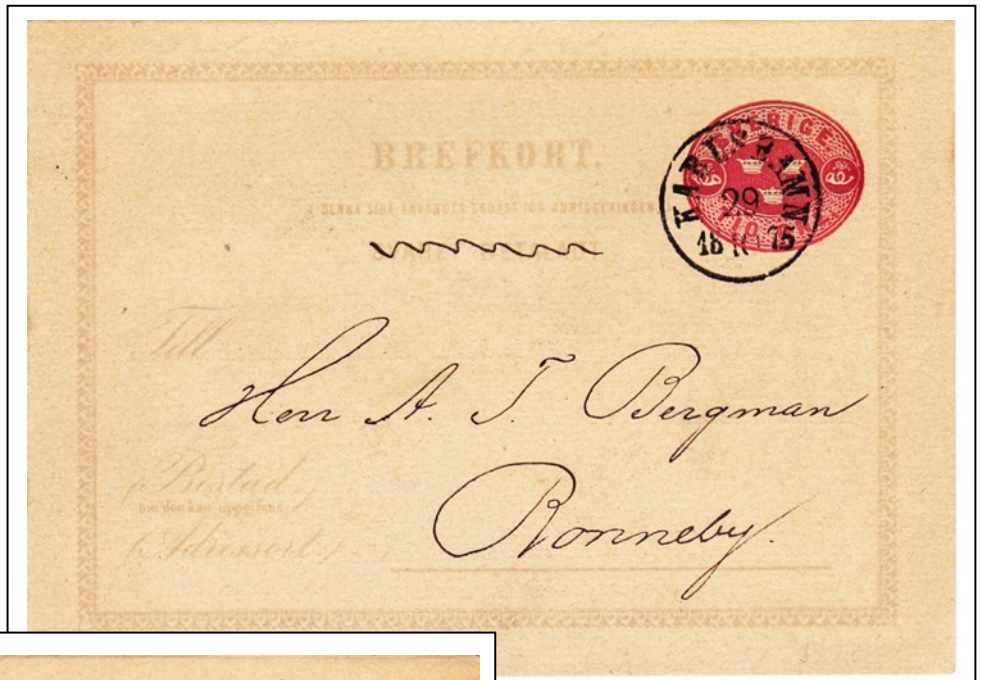 BREFKORT.
SVERIGE
KARLSHAMN
29
18 75
Till
Herr A. T. Bergman
(Bostad,
om den kan uppgifvas)
Ronneby.
(Adressort.)